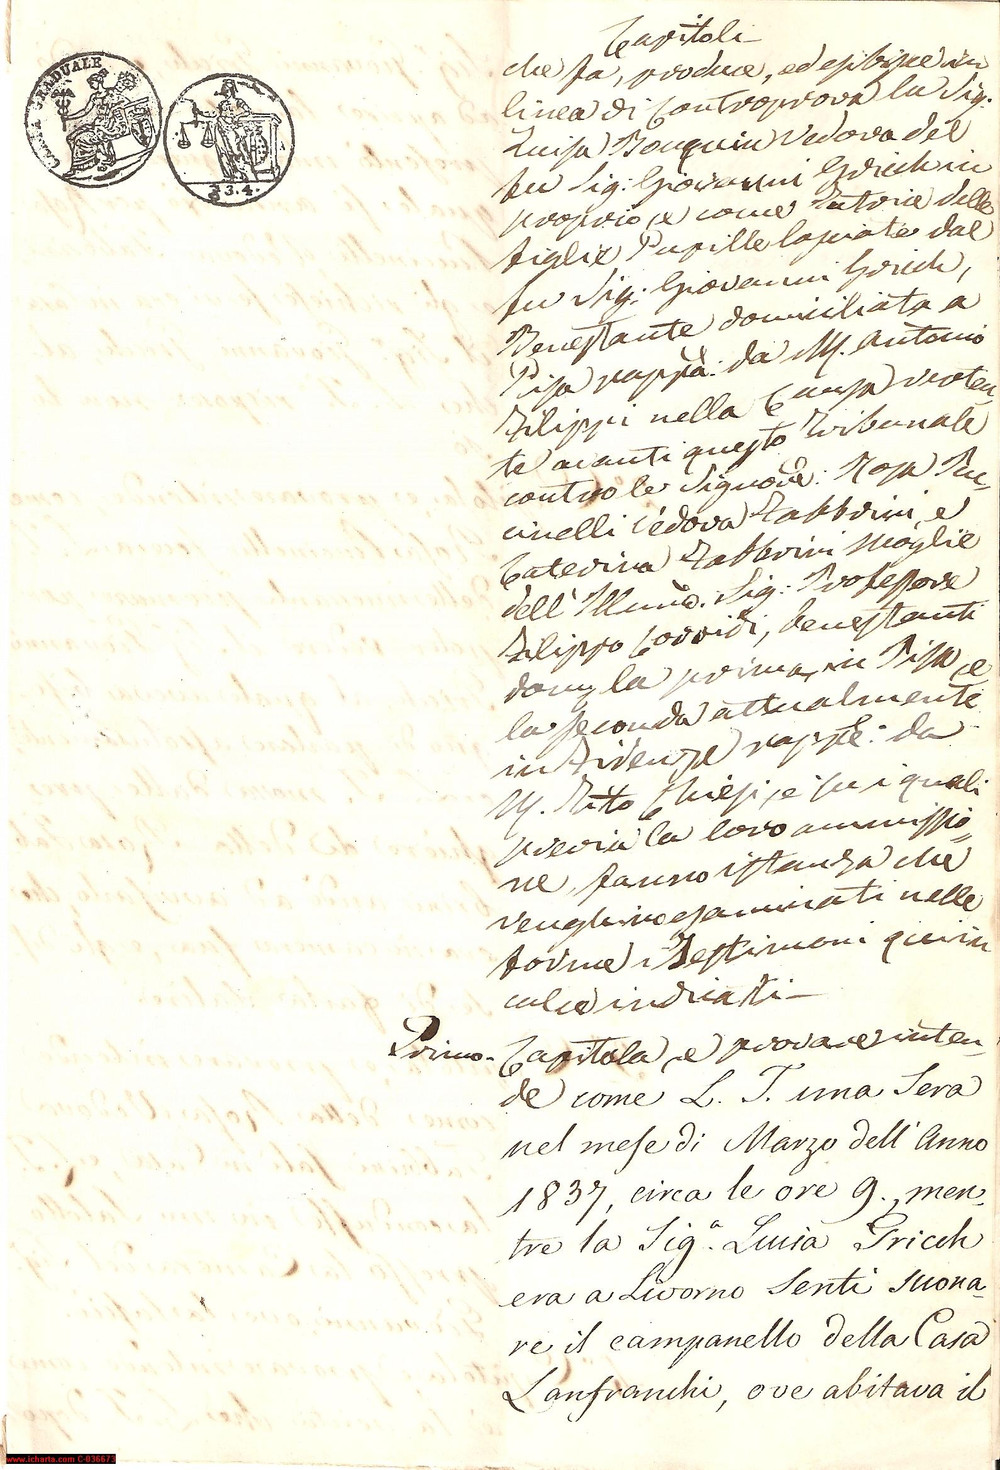 CARTA GRADUALE
23.4.
Capitoli
che fa, produce, ed esibisce in
linea di Controprova la Sig:
Luisa Bouquin Vedova del
fu Sig: Giovanni Grich in
proprio, e come Tutrice delle
figlie Pupille lasciate dal
fu Sig: Giovanni Grich,
Benestante domiciliata a
Pisa rappta: da M. Antonio
Filippi nella Causa verten-
te avanti questo Tribunale
contro le Signore: Rosa Puc-
cinelli Vedova Fabbrini, e
Caterina Fabbrini Moglie
dell' Illumo. Sig: Professore
Filippo Corridi, benestanti
domta la prima in Pisa, e
la seconda attualmente
in Firenze rappte: da
M. Tito Chiesi, e su i quali
previa la loro ammissio-
ne, fanno istanza che
venghino esaminati nelle
forme i Testimoni qui in
calce indicati—
Primo- Capitola, e provare inten-
de come L. T. una Sera
nel mese di Marzo dell' Anno
1837, circa le ore 9., men-
tre la Sig.a Luisa Gricch
era a Livorno Sentì suona-
re il campanello della Casa
Lanfranchi, ove abitava il
www.icharta.com C-836673